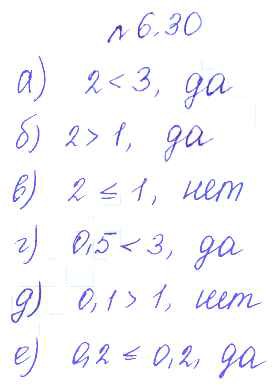 № 6.30
а) 2 < 3, да
б) 2 > 1, да
в) 2 ≤ 1, нет
г) 0,5 < 3, да
д) 0,1 > 1, нет
е) 0,2 ≤ 0,2, да